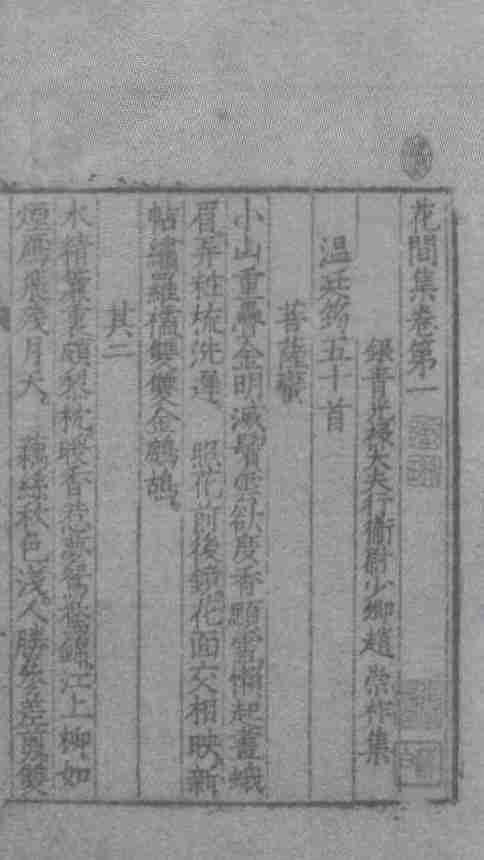 花間集卷第一
銀青光祿大夫行衛尉少卿趙崇祚集
温廷筠五十首
菩薩蠻
小山重疊金明滅鬢雲欲度香顋雪懶起畫蛾
眉弄粧梳洗遲 照花前後鏡花面交相映新
帖繡羅襦雙雙金鷓鴣
其二
水精簾裏頗黎枕暖香惹夢鴛鴦錦江上柳如
煙鴈飛殘月天 藕絲秋色淺人勝參差剪雙